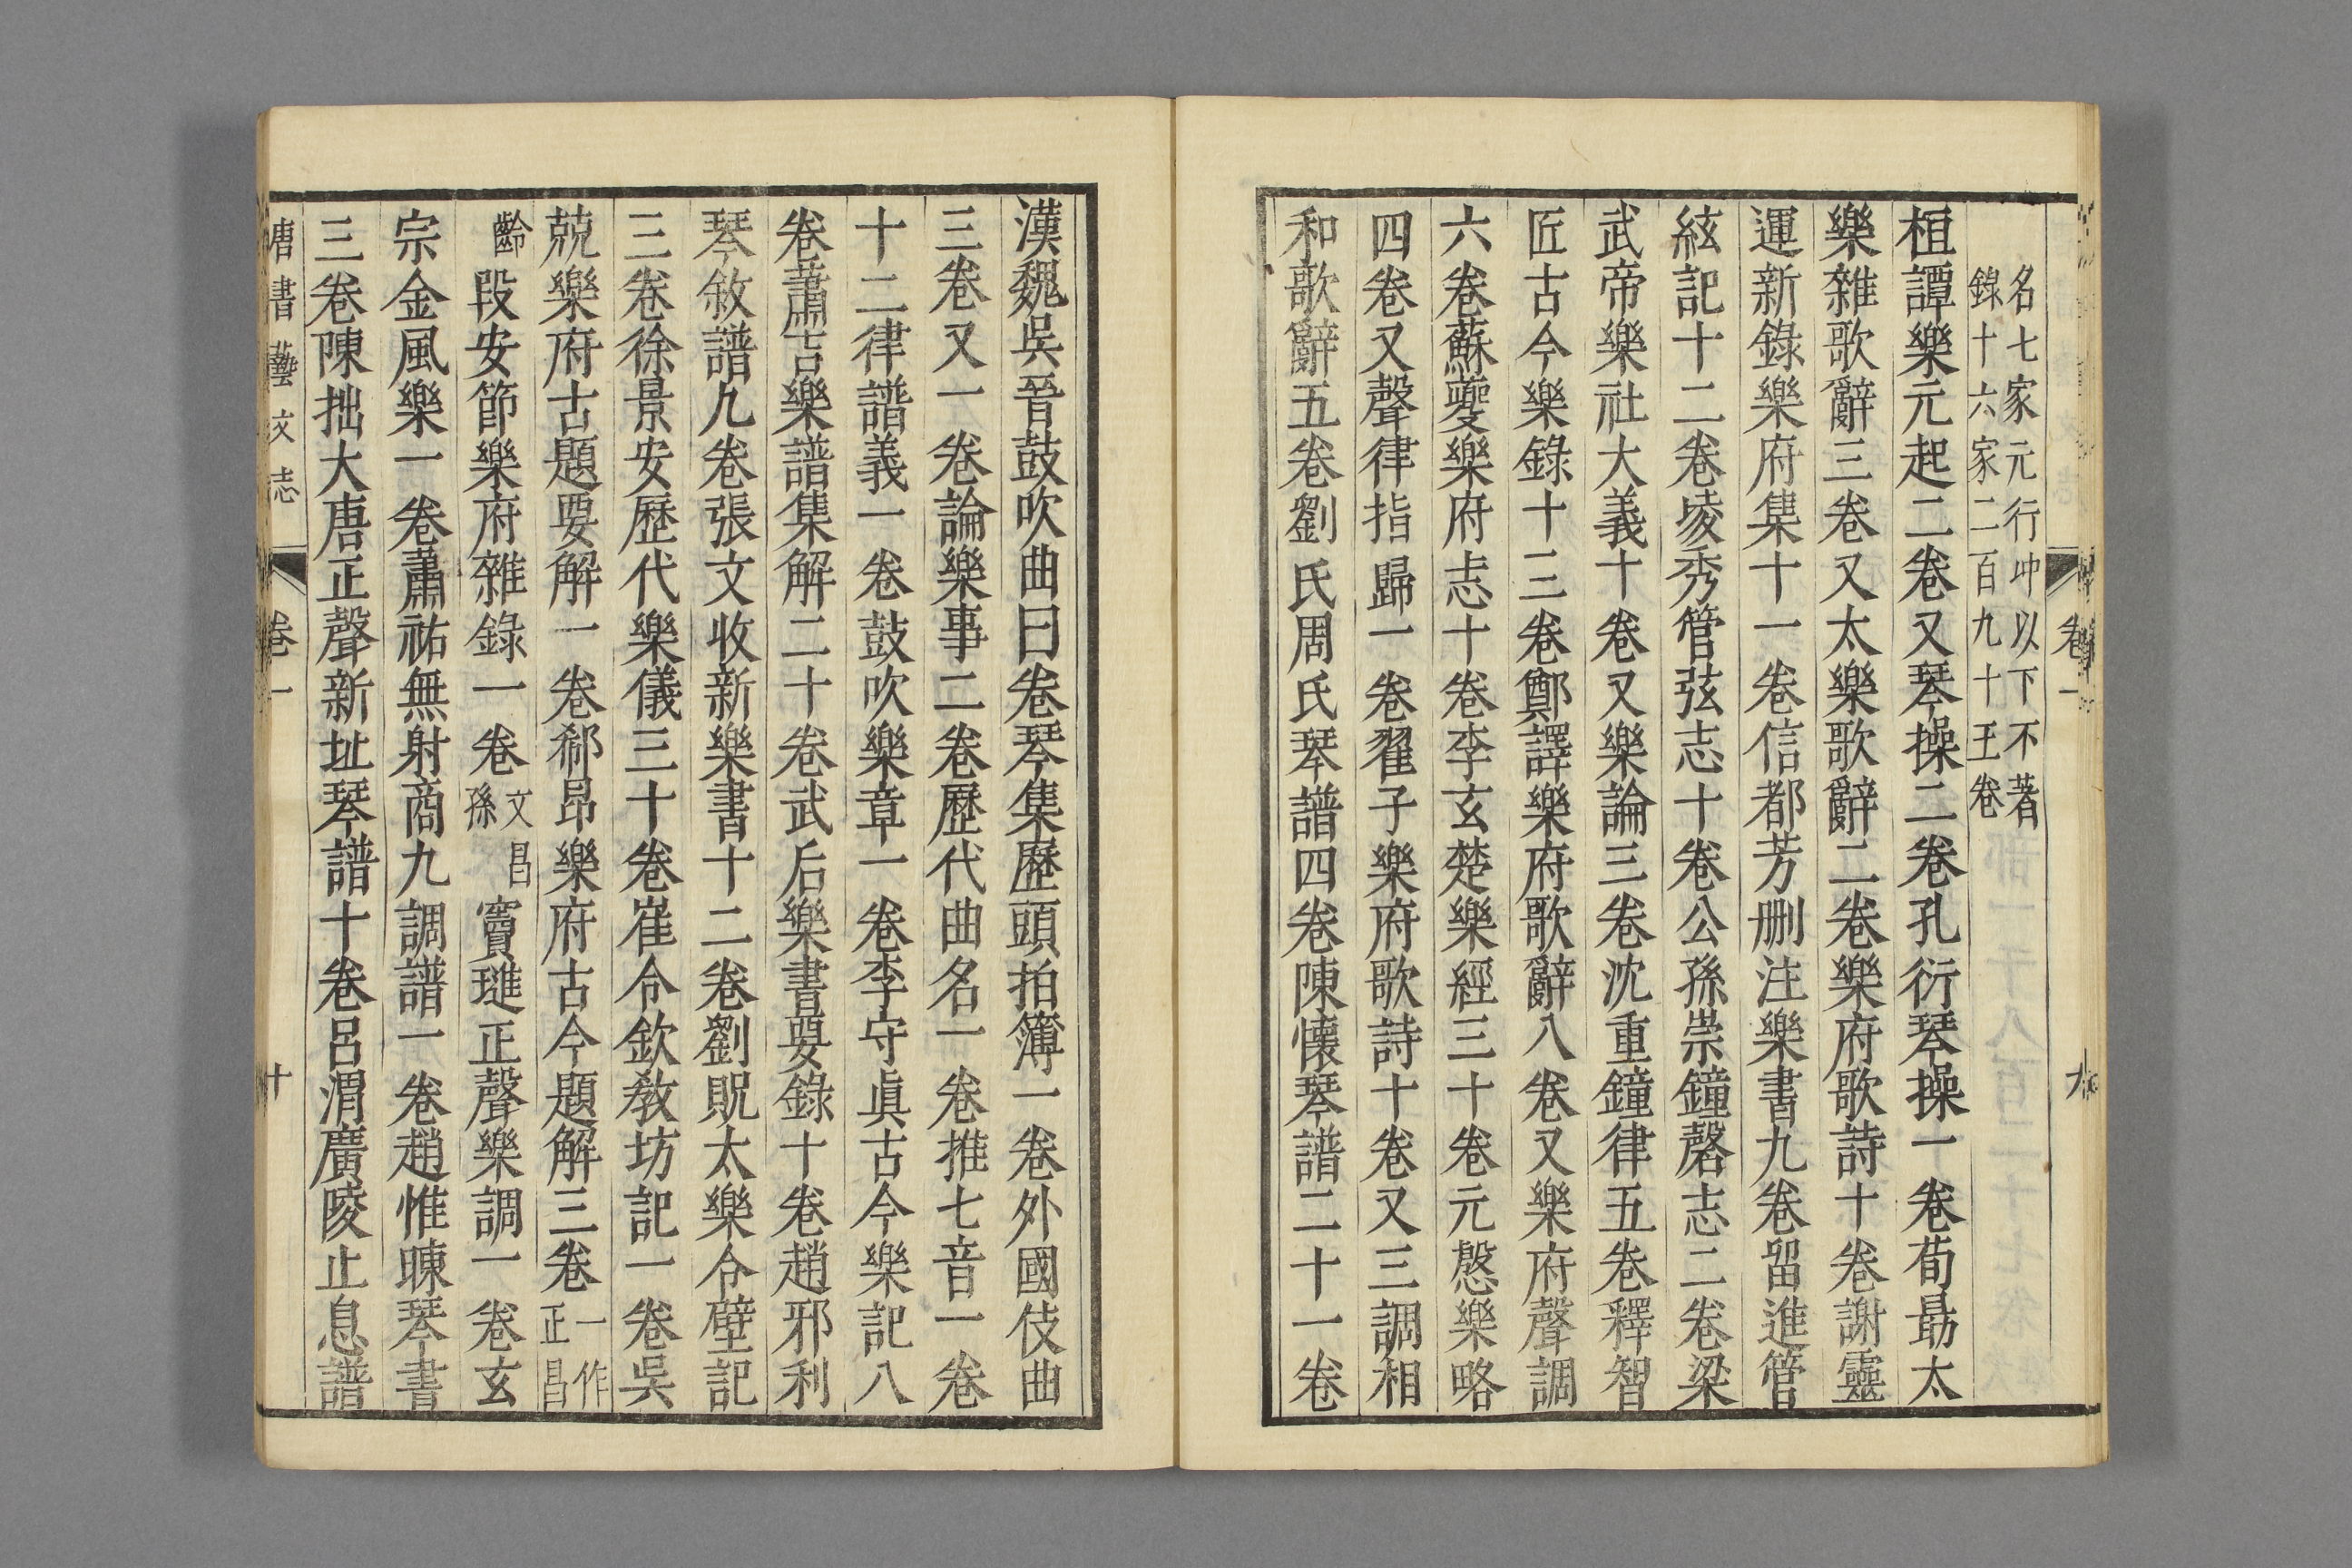 卷一
九
名七家元行冲以下不著
錄十六家二百九十五卷
桓譚樂元起二卷又琴操二卷孔衍琴操一卷荀勗太
樂雜歌辭三卷又太樂歌辭二卷樂府歌詩十卷謝靈
運新錄樂府集十一卷信都芳刪注樂書九卷留進管
絃記十二卷凌秀管弦志十卷公孫崇鐘磬志二卷梁
武帝樂社大義十卷又樂論三卷沈重鐘律五卷釋智
匠古今樂錄十三卷鄭譯樂府歌辭八卷又樂府聲調
六卷蘇夔樂府志十卷李玄楚樂經三十卷元慇樂略
四卷又聲律指歸一卷翟子樂府歌詩十卷又三調相
和歌辭五卷劉氏周氏琴譜四卷陳懷琴譜二十一卷
漢魏吳晉鼓吹曲曰卷琴集歷頭拍簿一卷外國伎曲
三卷又一卷論樂事二卷歷代曲名一卷推七音一卷
十二律譜義一卷鼓吹樂章一卷李守眞古今樂記八
卷蕭吉樂譜集解二十卷武后樂書要錄十卷趙邪利
琴敘譜九卷張文收新樂書十二卷劉貺太樂令壁記
三卷徐景安歷代樂儀三十卷崔令欽教坊記一卷吳
兢樂府古題要解一卷郗昂樂府古今題解三卷一作
正昌
齡段安節樂府雜錄一卷文昌
孫竇璡正聲樂調一卷玄
宗金風樂一卷蕭祐無射商九調譜一卷趙惟暕琴書
三卷陳拙大唐正聲新址琴譜十卷呂渭廣陵止息譜
唐書藝文志
卷一
十